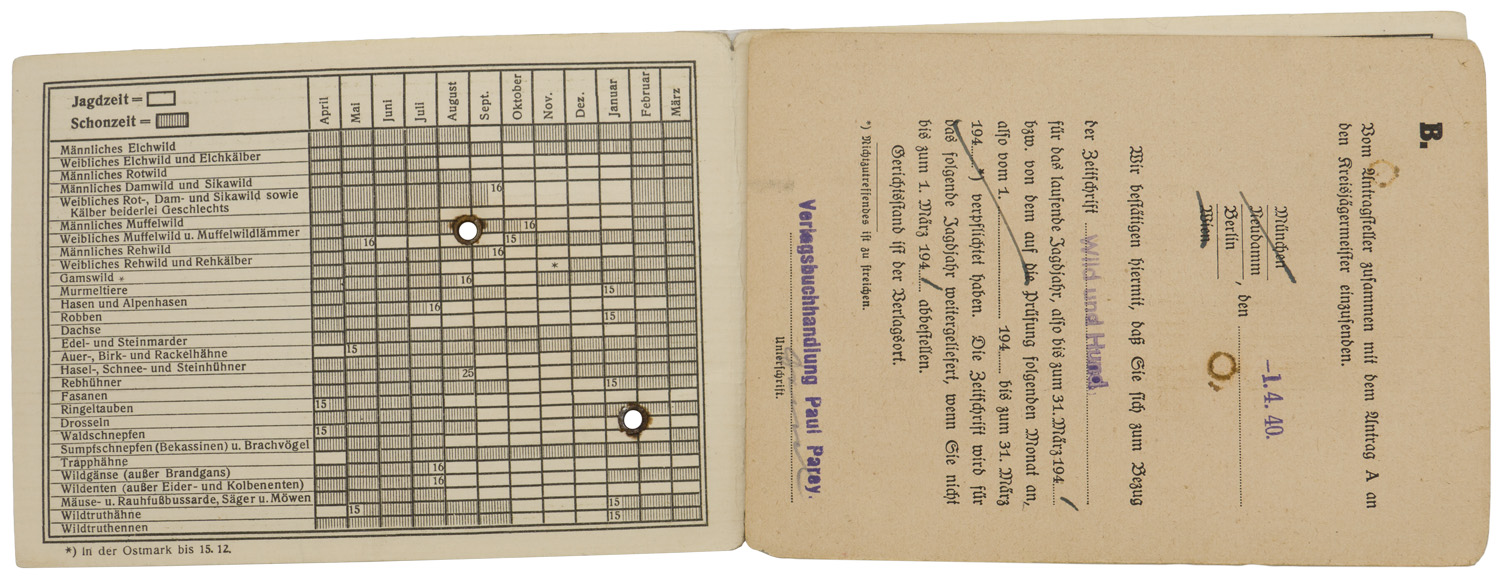 Jagdzeit =
Schonzeit =
April Mai Juni Juli August Sept. Oktober Nov. Dez. Januar Februar März
Männliches Elchwild
Weibliches Elchwild und Elchkälber
Männliches Rotwild
Männliches Damwild und Sikawild 16
Weibliches Rot-, Dam- und Sikawild sowie
Kälber beiderlei Geschlechts
Männliches Muffelwild 16
Weibliches Muffelwild u. Muffelwildlämmer 16 15
Männliches Rehwild 16
Weibliches Rehwild und Rehkälber *
Gamswild * 16
Murmeltiere 15
Hasen und Alpenhasen 16
Robben 15
Dachse
Edel- und Steinmarder 15
Auer-, Birk- und Rackelhähne
Hasel-, Schnee- und Steinhühner 25
Rebhühner 15
Fasanen 15
Ringeltauben
Drosseln 15
Waldschnepfen
Sumpfschnepfen (Bekassinen) u. Brachvögel
Trapphähne 16
Wildgänse (außer Brandgans) 16
Wildenten (außer Eider- und Kolbenenten)
Mäuse- u. Rauhfußbussarde, Säger u. Möwen 15 15
Wildtruthähne 15
Wildtruthennen
*) In der Ostmark bis 15. 12.
B.
Vom Antragsteller zusammen mit dem Antrag A an
den Kreisjägermeister einzusenden.
München
Neudamm
Berlin , den -1. 4. 40.
Wien
Wir bestätigen hiermit, daß Sie sich zum Bezug
der Zeitschrift Wild und Hund
für das laufende Jagdjahr, also bis zum 31. März 194 /
bzw. von dem auf die Prüfung folgenden Monat an,
also vom 1. 194 bis zum 31. März
194 *) verpflichtet haben. Die Zeitschrift wird für
das folgende Jagdjahr weitergeliefert, wenn Sie nicht
bis zum 1. März 194 / abbestellen.
Gerichtsstand ist der Verlagsort.
*) Nichtzutreffendes ist zu streichen.
Verlagsbuchhandlung Paul Parey.
Unterschrift.